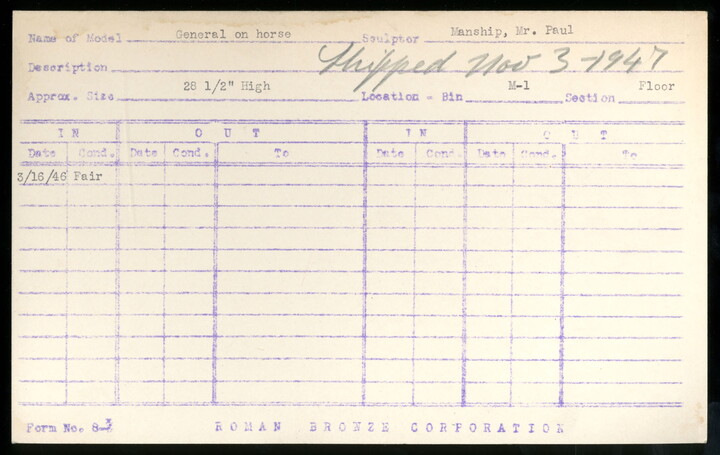 Name of Model General on horse Sculptor Manship, Mr. Paul
Description Shipped Nov 3-1947
Approx. Size 28 1/2" High Location - Bin M-1 Section Floor
IN OUT IN OUT
Date Cond. Date Cond. To Date Cond. Date Cond. To
3/16/46 Fair
Form No. 8-3 ROMAN BRONZE CORPORATION